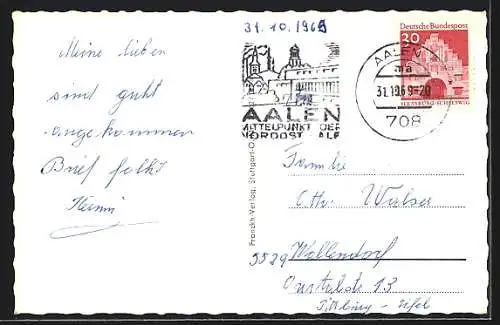 31.10.1969
Meine lieben
sind guht
angekommen
Brief folgt
AALEN
MITTELPUNKT DER
NORDOST ALB
AALEN
31.10.69-20
708
Deutsche Bundespost
20
FLENSBURG/SCHLESWIG
Franckh-Verlag, Stuttgart-O
Familie
Chr. Walser
5529 Wallendorf
Ortsteil 13
Bitburg - Eifel